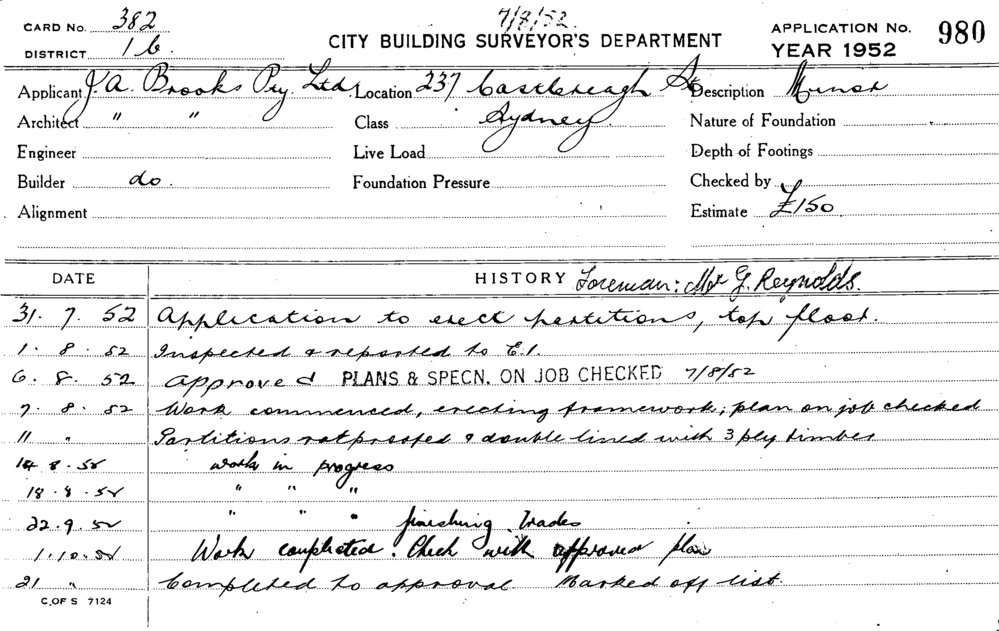 CARD No. 382
7/8/52.
APPLICATION No. 980
DISTRICT 1 b.
CITY BUILDING SURVEYOR'S DEPARTMENT
YEAR 1952
Applicant J. A. Brooks Pty. Ltd. Location 237 Castlereagh St Description Minor
Architect " " Class Sydney. Nature of Foundation
Engineer Live Load Depth of Footings
Builder do. Foundation Pressure Checked by
Alignment Estimate £150
DATE HISTORY Foreman: Mr G. Reynolds.
31. 7. 52 Application to erect partitions, top floor.
1. 8. 52 Inspected & reported to E.I.
6. 8. 52 Approved PLANS & SPECN. ON JOB CHECKED 7/8/52
7. 8. 52 Work commenced, erecting framework; plan on job checked
11 " Partitions ratproofed & double lined with 3 ply timber
14 8. 52 work in progress
18. 8. 52 " " "
22. 9. 52 " " " finishing Trades
1. 10. 52 Work completed. Check with approved plan
21 " Completed to approval Marked off list.
C. OF S 7124